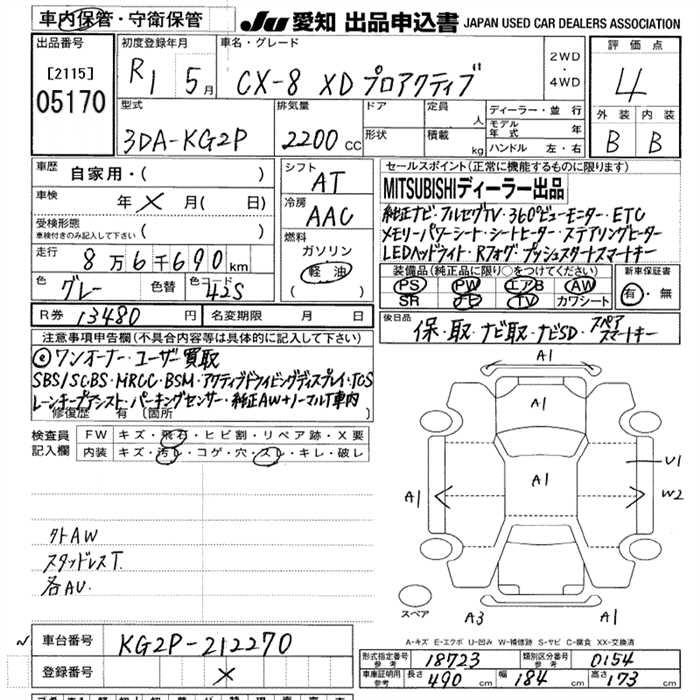 車内保管・守衛保管
JU 愛知 出品申込書 JAPAN USED CAR DEALERS ASSOCIATION
出品番号
[2115]
05170
初度登録年月
R1 5月
車名・グレード
CX-8 XD プロアクティブ
2WD
・
4WD
評価点
4
外装 内装
B B
型式
3DA-KG2P
排気量
2200 CC
ドア
形状
定員 人
積載 kg
ディーラー・並行
モデル年式 年
ハンドル 左・右
車歴 自家用・( )
車検 年 × 月( 日)
受検形態
車検付きのみ記入して下さい ( )
走行 8万6千690km
色 グレー 色替 色コード 42S
シフト
AT
冷房
AAC
燃料
ガソリン
軽油
( )
セールスポイント(正常に機能するものに限ります)
MITSUBISHIディーラー出品
純正ナビ・フルセグTV・360°ビューモニター・ETC
メモリーパワーシート・シートヒーター・ステアリングヒーター
LEDヘッドライト・Rフォグ・プッシュスタートスマートキー
装備品(純正品に限り○をつけてください)
PS PW エアB AW
SR ナビ TV カワシート
新車保証書
有・無
R券 13480 円 名変期限 年 月 日
後日品
保・取・ナビ取・ナビSD・スペアスマートキー
注意事項申告欄(不具合内容等は具体的に記入して下さい)
ワンオーナー・ユーザー買取
SBS/SCBS・MRCC・BSM・アクティブドライビングディスプレイ・TCS
レーンキープアシスト・パーキングセンサー・純正AW+ノーマルT車内
修復歴 有 〔箇所 〕
検査員記入欄
FW キズ・飛石・ヒビ割・リペア跡・X要
内装 キズ・汚レ・コゲ・穴・スレ・キレ・破レ
外AW
スタッドレスT.
各AU.
A1
A1
A1
A1
U1
W2
A1
スペア
A3
A1
A-キズ E-エクボ U-凹み W-補修跡 S-サビ C-腐食 XX-交換済
車台番号 KG2P-212270
登録番号 ×
形式指定番号 参考 18723 類別区分番号 参考 0154
車庫証明用 参考 長さ 490 cm 幅 184 cm 高さ 173 cm